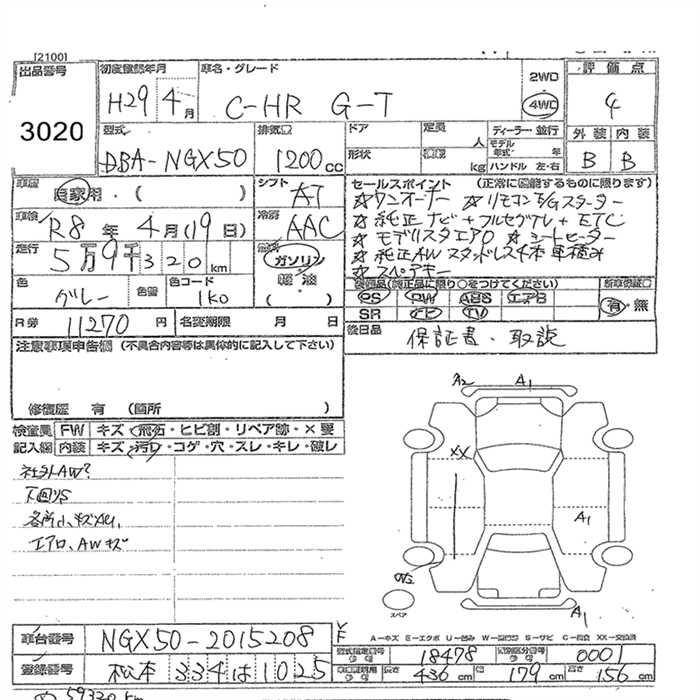 [2100]
出品番号
3020
初度登録年月
H29年4月
車名・グレード
C-HR G-T
2WD
4WD
評価点
4
型式
DBA-NGX50
排気量
1200cc
ドア
定員
人
ディーラー・並行
モデル年式
年
外装 内装
B B
形状
積量
kg
ハンドル 左・右
車歴
自家用・( )
シフト
AT
セールスポイント (正常に機能するものに限ります)
☆ワンオーナー ☆リモコンE/Gスターター
☆純正ナビ+フルセグTV+ETC
☆モデリスタエアロ ☆シートヒーター
☆純正AW スタッドレス4本 車積み
☆スペアキー
車検
R8年4月(19日)
冷房
AAC
走行
5万9千320km
燃料
ガソリン
軽油
( )
色
グレー
色替
色コード
1K0
装備品(純正品に限り○をつけてください)
新車保証書
PS PW ABS エアB
有・無
SR ナビ TV
R券
11270円
名変期限 月 日
後日品
保証書・取説
注意事項申告欄 (不具合内容等は具体的に記入して下さい)
修復歴 有 (箇所 )
検査員 FW キズ・飛石・ヒビ割・リペア跡・×要
記入欄 内装 キズ・汚れ・コゲ・穴・スレ・キレ・破レ
社外AW?
下回りS
各所小キズA1,
エアロ、AWキズ
A2
A1
XX
A1
A1
スペア
A-キズ E-エクボ U-凹み W-波打ち S-サビ C-腐食 XX-交換済
車台番号
NGX50-2015208
型式指定番号
18478
類別区分番号
0001
登録番号
松本 334 は 1025
長さ
436cm
幅
179cm
高さ
156cm
59320km